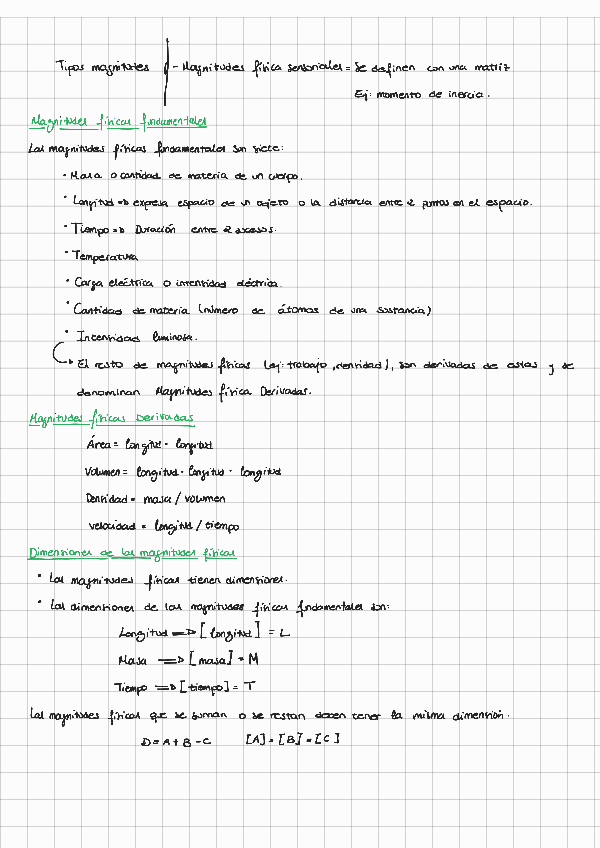 Tipos magnitudes - Magnitudes física sensoriales = Se definen con una matriz
Ej: momento de inercia.
Magnitudes físicas fundamentales
Las magnitudes físicas fundamentales son siete:
· Masa o cantidad de materia de un cuerpo.
· Longitud => expresa espacio de un objeto o la distancia entre 2 puntos en el espacio.
· Tiempo => Duración entre 2 sucesos.
· Temperatura
· Carga eléctrica o intensidad eléctrica.
· Cantidad de materia (número de átomos de una sustancia)
· Intensidad luminosa.
El resto de magnitudes físicas (ej: trabajo, densidad), son derivadas de estas y se
denominan Magnitudes física Derivadas.
Magnitudes físicas Derivadas
Área = longitud · longitud
Volumen = longitud · longitud · longitud
Densidad = masa / volumen
velocidad = longitud / tiempo
Dimensiones de las magnitudes físicas
· Las magnitudes físicas tienen dimensiones.
· Las dimensiones de las magnitudes físicas fundamentales son:
Longitud => [longitud] = L
Masa => [masa] = M
Tiempo => [tiempo] = T
Las magnitudes físicas que se suman o se restan deben tener la misma dimensión.
D = A + B - C [A] = [B] = [C]